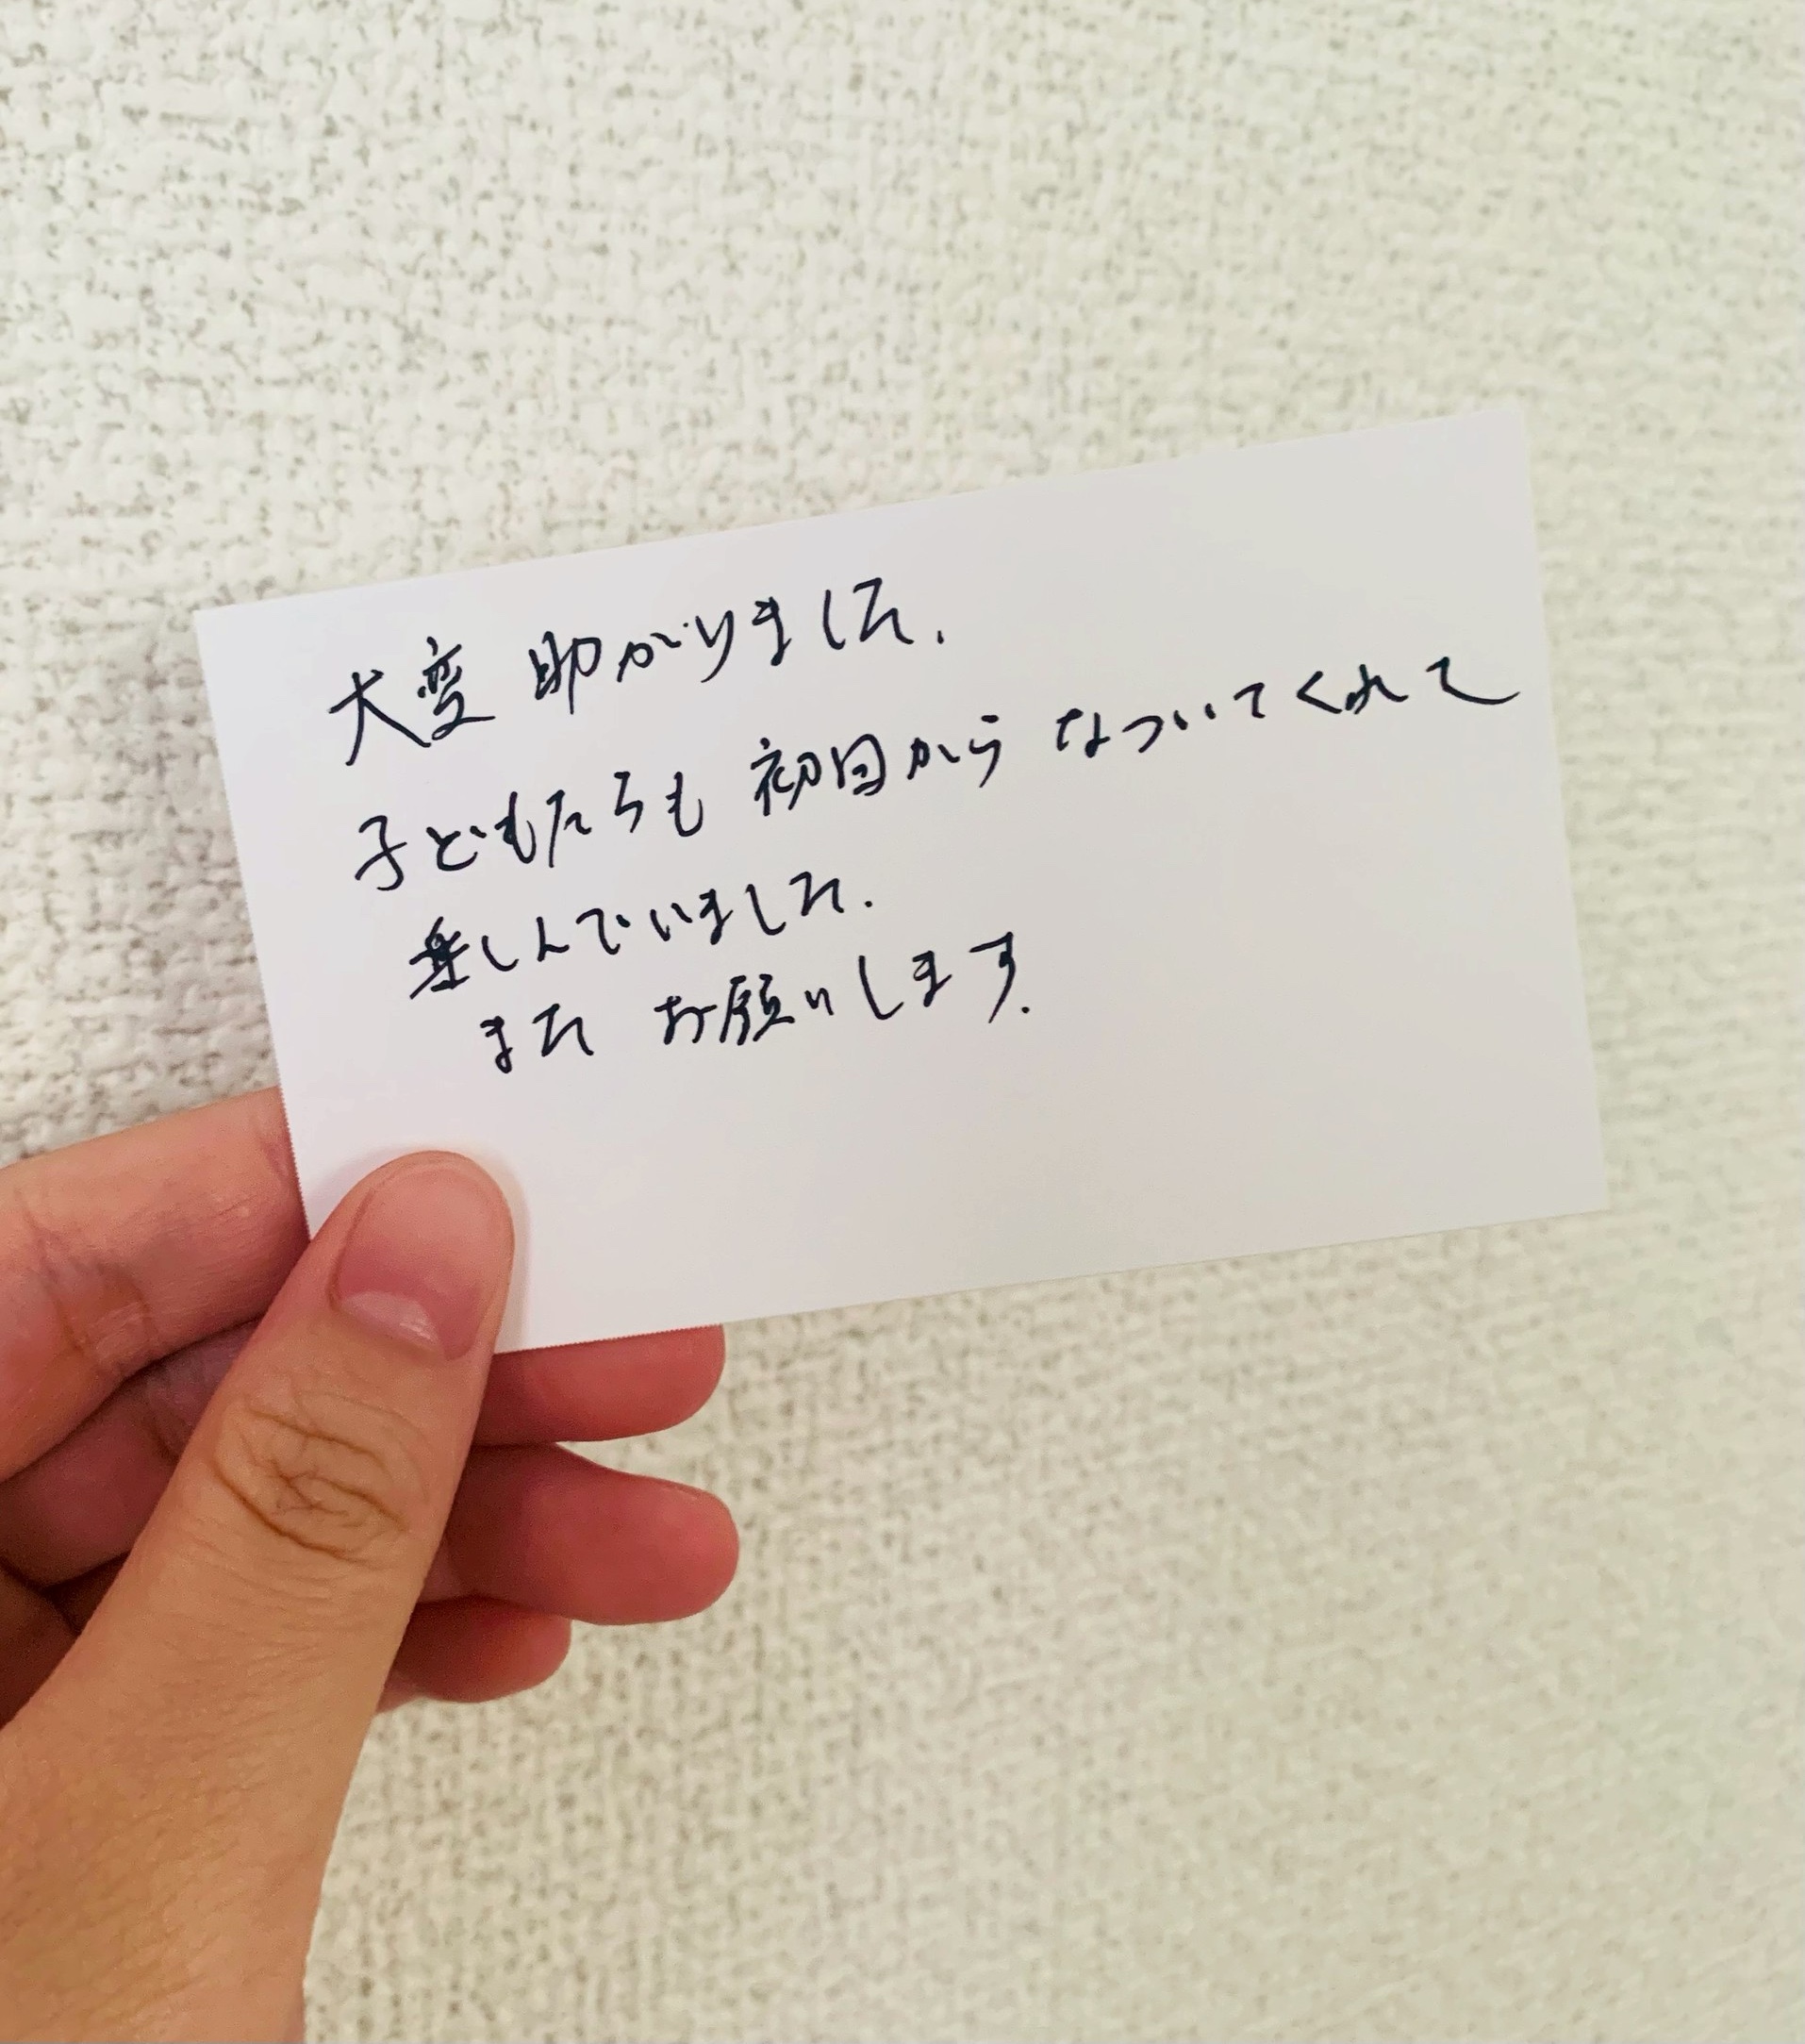 大変 助かりました.
子どもたちも 初日から なついてくれて
楽しんでいました.
また お願いします.